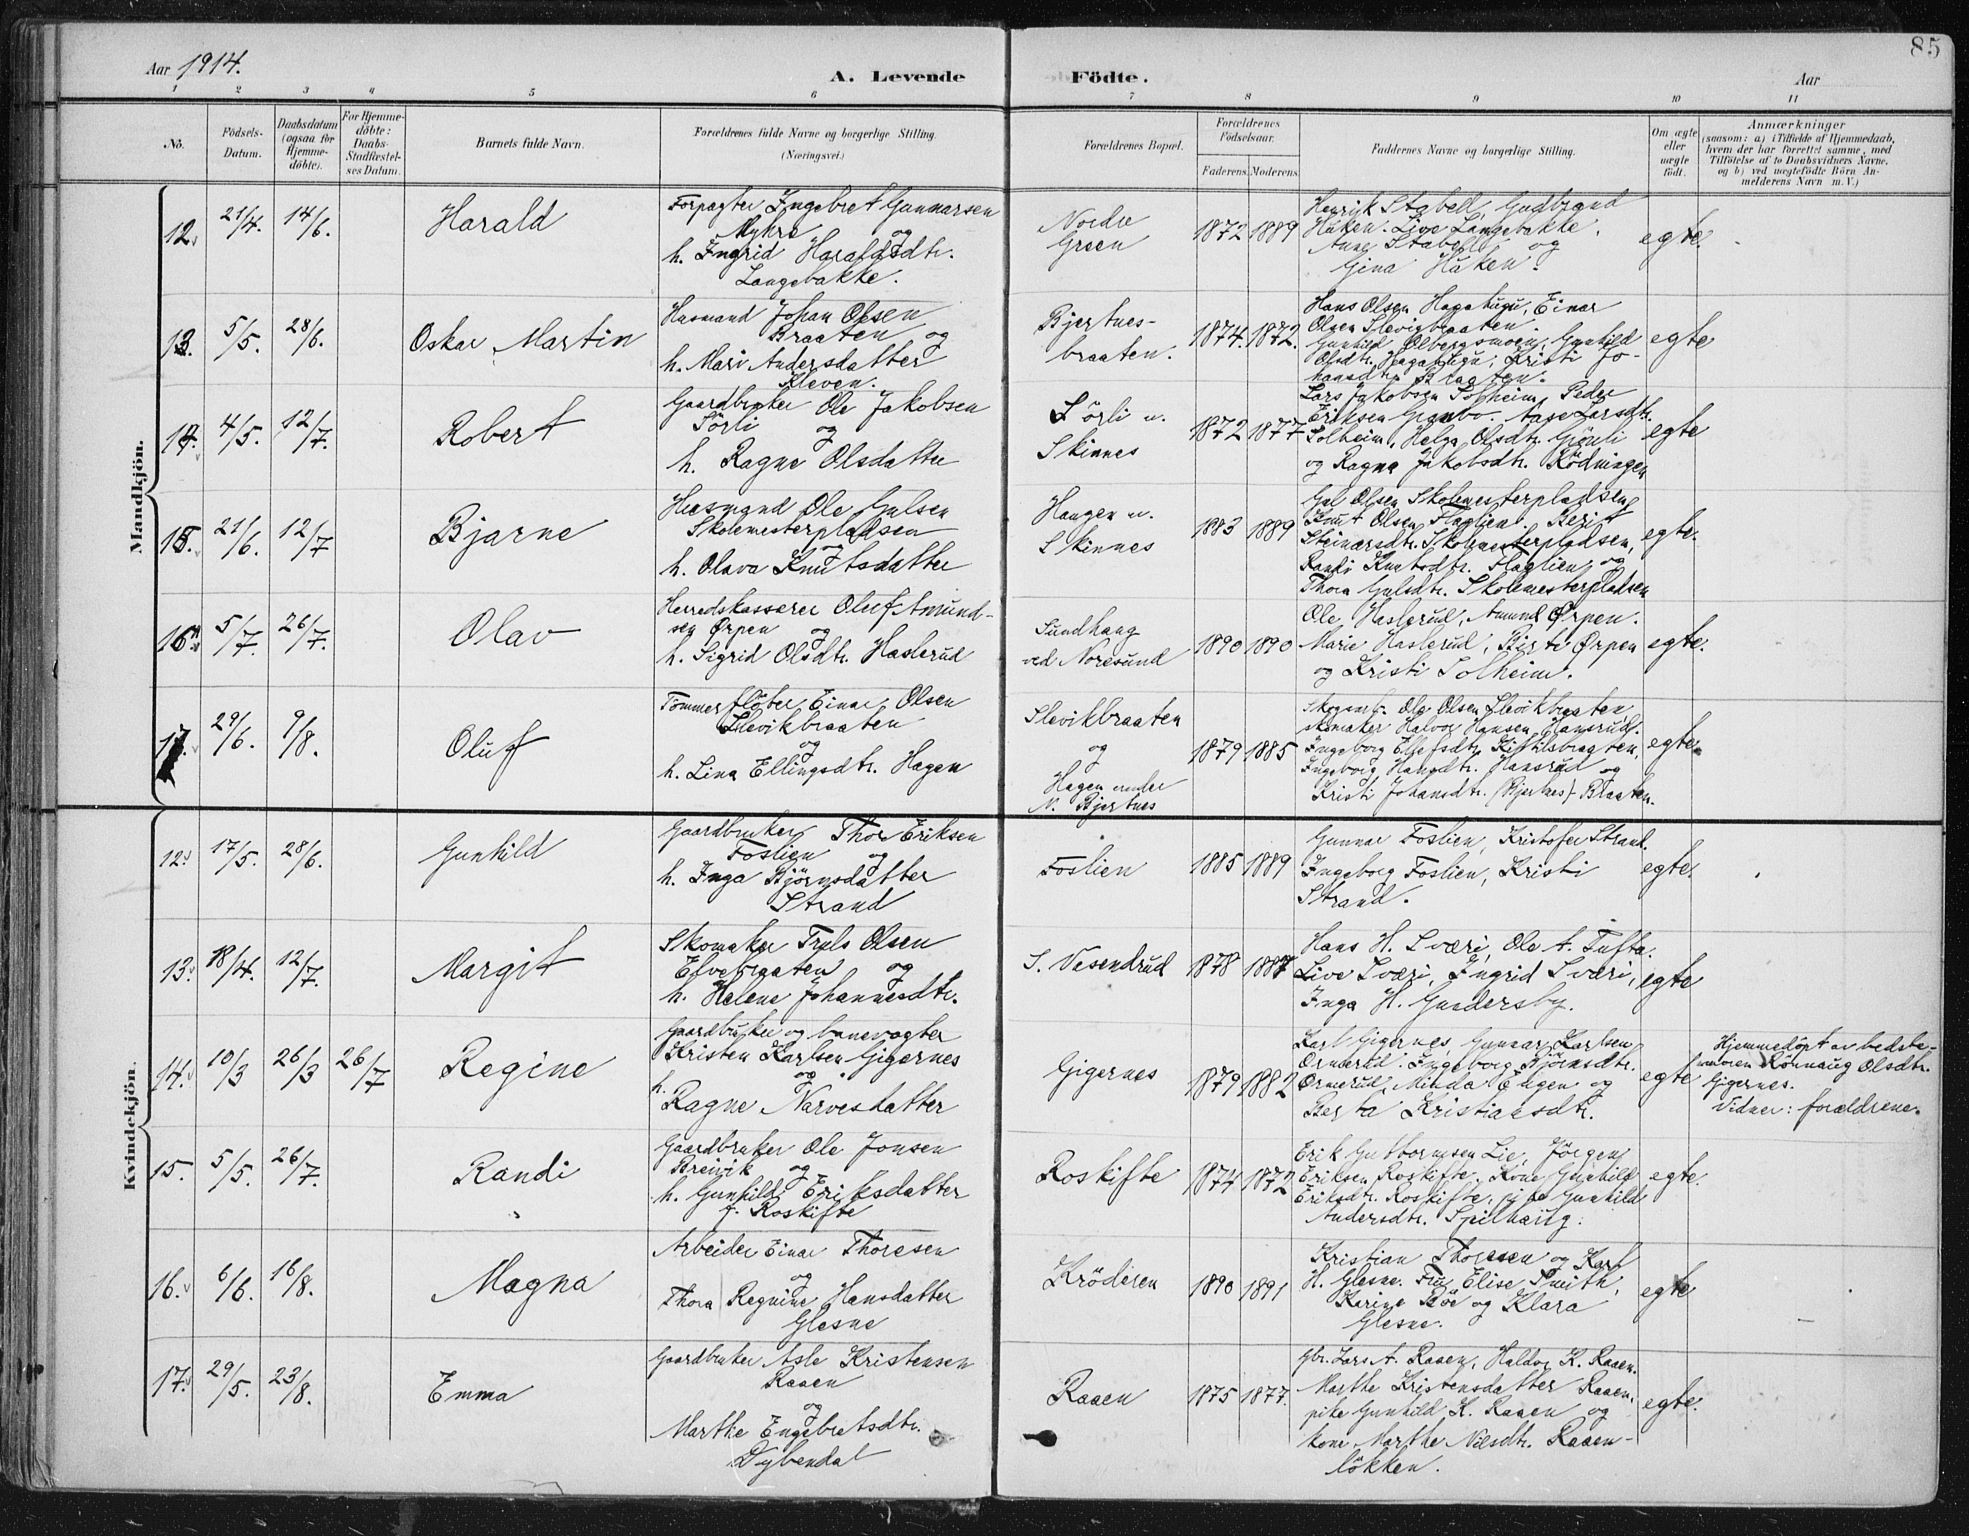 85
Aar 1914.
A. Levende Födte.
Aar
1 2 3 4 5 6 7 8 9 10 11
No.
Födsels-Datum.
Daabsdatum (ogsaa for Hjemme-döbte).
For Hjemme-döbte: Daabs-Stadfæstel-ses Datum.
Barnets fulde Navn.
Forældrenes fulde Navne og borgerlige Stilling. (Næringsvei.)
Forældrenes Bopæl.
Forældrenes Födselsaar.
Faderens. Moderens.
Faddernes Navne og borgerlige Stilling.
Om ægte eller uægte födt.
Anmærkninger
(saasom: a) i Tilfælde af Hjemmedaab,
hvem der har forrettet samme, med
Tilföielse af to Daabsvidners Navne,
og b) ved uægtefödte Börn An-
melderens Navn m. V.)
Mandkjön.
12. 21/4. 14/6. Harald
Forpagter Ingebret Gunnarsen
Myhre og
h. Ingrid Haraldsdtr.
Langebakke.
Nordre
Green
1872 1889
Henrik Stabell, Gudbrand
Haken. Live Langebakke.
Anne Stabell og
Gina Haken.
egte.
13. 5/5. 28/6. Oskar Martin
Husmand Johan Olsen
Braaten og
h. Mari Andersdatter
Kleven.
Bjertnes-
braaten.
1874. 1872.
Hans Olsen Hagahugu, Einar
Olsen Slevigbraaten.
Gunhild Olbergsmoen, Gunhild
Olsdtr. Hagahugu, Kristi Jo-
hansdtr. Braaten.
egte
14. 4/5. 12/7. Robert
Gaardbruker Ole Jakobsen
Sörli og
h. Ragne Olsdatter
Sörli u.
Skinnes
1872 1877
Lars Jakobsen Solheim, Peder
Eriksen Grønbo. Aase Larsdtr.
Solheim, Helga Olsdtr. Gjönli
og Ragna Jakobsdtr. Rödningen
egte
15. 21/6. 12/7 Bjarne
Husmand Ole Gulsen
Skolemesterpladsen
og
h. Olava Knutsdatter
Haugen u.
Skinnes
1883 1889
Gul Olsen Skolemesterpladsen,
Knut Olsen Flaglien. Berit
Steinarsdtr. Skolemesterpladsen,
Randi Knutsdtr. Flaglien og
Thora Gulsdtr. Skolemesterpladsen
egte.
16. 5/7. 26/7. Olav
Herredskasserer Oluf Amund-
sen Ørpen og
h. Sigrid Olsdtr. Haslerud
Sundhaug
ved Noresund
1890 1890
Ole Haslerud, Amund Ørpen.
Marie Haslerud, Birte Ørpen
og Kristi Solheim.
egte.
17. 29/6. 9/8. Oluf
Tömmerflöter Einar Olsen
Slevikbraaten
og
h. Lina Ellingsdtr. Hagen
Slevikbraaten
og
Hagen under
N. Bjertnes
1879 1885
Skogsarb. Ole Olsen Slevikbraaten
skomaker Halvor Hansen Hansrud.
Ingeborg Ellefsdtr. Kittilsbraaten,
Ingeborg Hansdtr. Hansrud og
Kristi Johansdtr. (Bjertnes)-Braaten.
egte.
Kvindekjön.
12. 17/5. 28/6. Gunhild
Gaardbruker Thor Eriksen
Foslien og
h. Inga Björnsdatter
Strand
Foslien
1885 1889
Gunnar Foslien, Kristofer Strand.
Ingeborg Foslien, Kristi
Strand.
egte.
13. 18/4. 12/7. Margit
Skomaker Truls Olsen
Elvebraaten og
h. Helene Johannesdtr.
S. Vesendrud
1878 1887
Hans H. Sværi, Ole A. Tufta.
Live Sværi, Ingrid Sværi,
Inga H. Gundersby.
egte
14. 10/3 26/3 26/7 Regine
Gaardbruker og banevogter
Kristen Karlsen Gigernes
og
h. Ragne Narvesdatter
Gigernes
1879 1882
Karl Gigernes, Gunnar Karlsen
Ormerud. Ingeborg Björnsdtr.
Ormerud, Minda Engen og
Berta Kristiansdtr.
egte
Hjemmedöpt av bedste-
moren Rönnaug Olsdtr.
Gigernes.
Vidner: forældrene.
15. 5/5. 26/7. Randi
Gaardbruker Ole Jonsen
Breivik og
h. Gunhild Eriksdatter
f. Roskifte
Roskifte
1874 1872
Erik Guttormsen Lie, Jörgen
Eriksen Roskifte. Kone Gunhild
Eriksdtr. Roskifte, pike Gunhild
Andersdtr. Spilhaug.
egte.
16. 6/6. 16/8. Magna
Arbeider Einar Thoresen
og
Thora Regnine Hansdatter
Glesne
Kröderen
1890 1891
Kristian Thoresen og Karl
H. Glesne. Fru Elise Smith,
Karine Böe og Klara
Glesne.
egte
17. 29/5. 23/8. Emma
Gaardbruker Asle Kristensen
Raaen
og
Marthe Engebretsdtr.
Dybendal
Raaen
1875 1877.
Gbr. Lars A. Raaen, Haldor K. Raaen.
Marthe Kristensdatter Raaen.
pike Gunhild K. Raaen og
kone Marthe Nilsdtr. Raaen-
lökken.
egte.